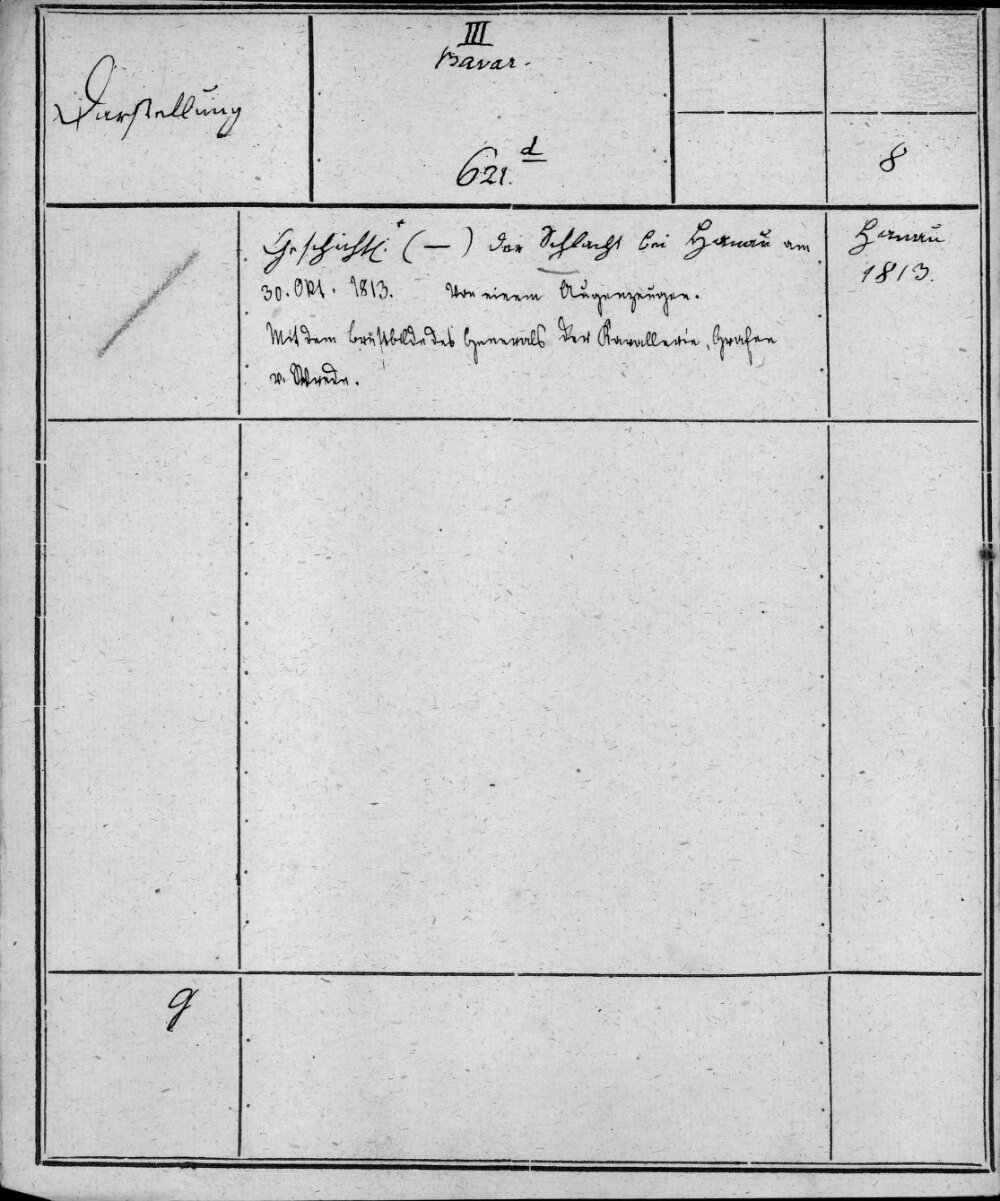 III
Bavar.
Darstellung
621.d
8
Geschichtl. (—) der Schlacht bei Hanau am
30. Okt. 1813. Von einem Augenzeugen.
Mit dem Brustbilde des Generals der Kavallerie, Grafen
v. Wrede.
Hanau
1813.
g